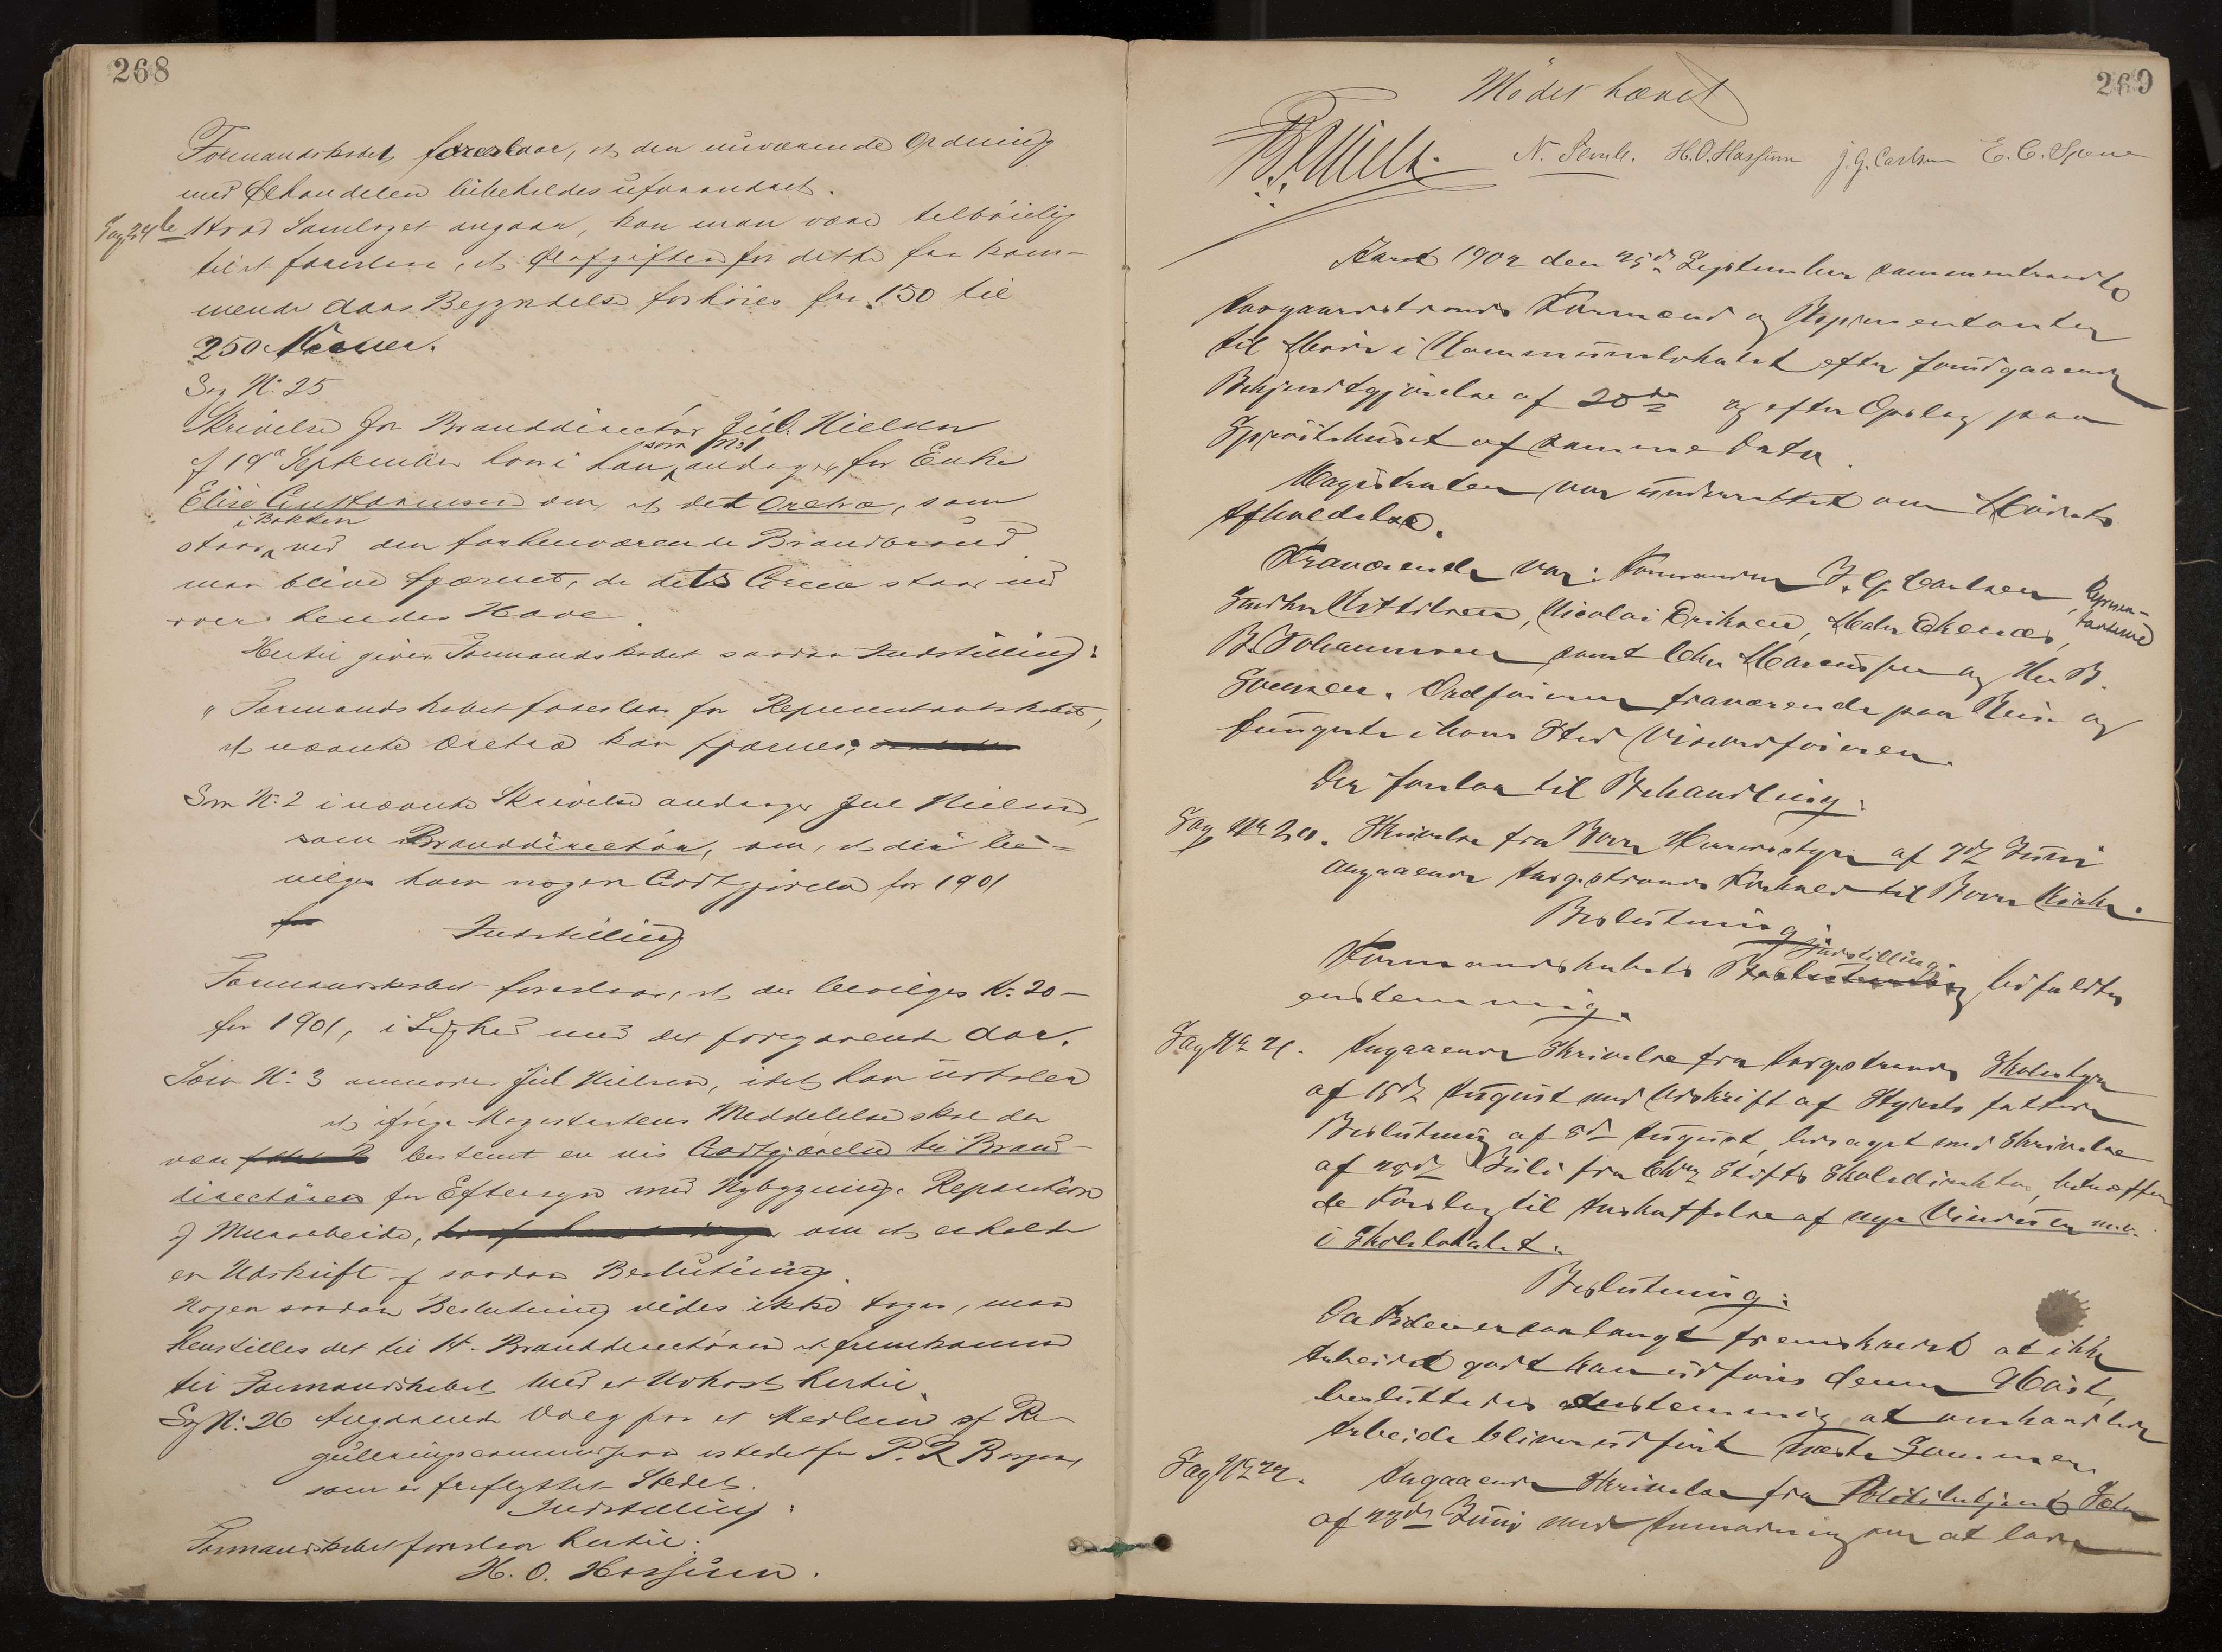 268
Formandskabet foreslaar, at den nuværende Ordning
med Ølhandelen bibeholdes uforandret.
Sag 24 b Hvad Samlaget angaar, kan man være tilbøielig
til at foreslaa, at Ølafgiften for dette fra kom-
mende Aars Begyndelse forhöies fra 150 til
250 Kroner.
Sag N: 25
Skrivelse fra Branddirectör Jul. Nielsen
af 19de September hvori han som No 1 andrager for Enke
Elise Gustavsen om, at det Oretræ, som
staar i Bakken ved den forhenværende Brandbrönd
maa blive fjærnet, da dets Grene staar ind
over hendes Have.
Hertil giver Formandskabet saadan Indstilling:
"Formandskabet foreslaar for Representantskabet,
at nævnte Oretræ kan fjærnes,
Som N: 2 i nævnte Skrivelse andrager Jul Nielsen,
som Branddirectör, om, at der be-
vilges ham nogen Godtgjörelse for 1901
Indstilling
Formandskabet foreslaar, at der bevilges Kr. 20 –
for 1901, i Lighed med det foregaaende Aar.
Som N: 3 anmoder Jul Nielsen, idet han udtaler
at ifölge Magistratens Meddelelse skal der
være bestemt en vis Godtgjörelse til Brand-
directören for Eftersyn med Nybygning. Reparation
af Murarbeide, om at erholde
en Udskrift af saadan Beslutning.
Nogen saadan Beslutning vides ikke tagen, man
henstilles det til Hr. Branddirectören at fremkomme
til Formandskabet med et Udkast hertil.
Sag N: 26 Angaaende Valg paa et Medlem af Re-
guleringscommissionen istedetfor P. R. Borgen,
som er fraflyttet Stedet.
Indstilling:
Formandskabet foreslaar hertil:
H. O. Hassum.
269
Mödet hævet
N. H. O. Hassum J. G. Carlsen E. C. Spene
Aaret 1902 den 25de September sammentraadte
Aasgaardstrands Formænd og Repræsentanter
til Möde i Kommunelokalet efter forudgaaende
Bekjendtgjörelse af 20de og efter Opslag paa
Spröitehuset af samme Dato.
Magistraten var underrettet om Mödets
Afholdelse.
Fraværende var: Formanden J. G. Carlsen, Repræsen-
tanterne
Gudm. Kittilsen, Nicolai Eriksen, Mads Ekenæs,
B. Johannesen samt Chr Mareussen og Hr B.
Sörensen. Ordföreren fraværende paa Reise og
fungerte i hans Sted Viceordföreren.
Der forelaa til Behandling:
Sag No 20. Skrivelse fra Borre Herredsstyre af 7de Juni
angaaende Aasgstrands Forhold til Borre Kirke.
Beslutning:
Formandskabets Indstilling bifaldtes
enstemmig.
Sag No 21. Angaaende Skrivelse fra Aasgstrands Skolestyre
af 15de August med Udskrift af Styrets fattede
Beslutning af 8de August, ledsaget med Skrivelse
af 28de Juli fra Chra Stifts Skoledirektör, betræffen
de Forslag til Anskaffelse af nye Vinduer m.v.
i Skolelokalet.
Beslutning:
Da Tiden er saa langt fremskredet at ikke
Arbeidet godt kan udföres denne Höst,
besluttedes enstemmig, at omhandlede
Arbeide bliver udfört næste Sommer.
Sag No 22. Angaaende Skrivelse fra Politibetjent
af 23de Juni med Anmodning om at lade